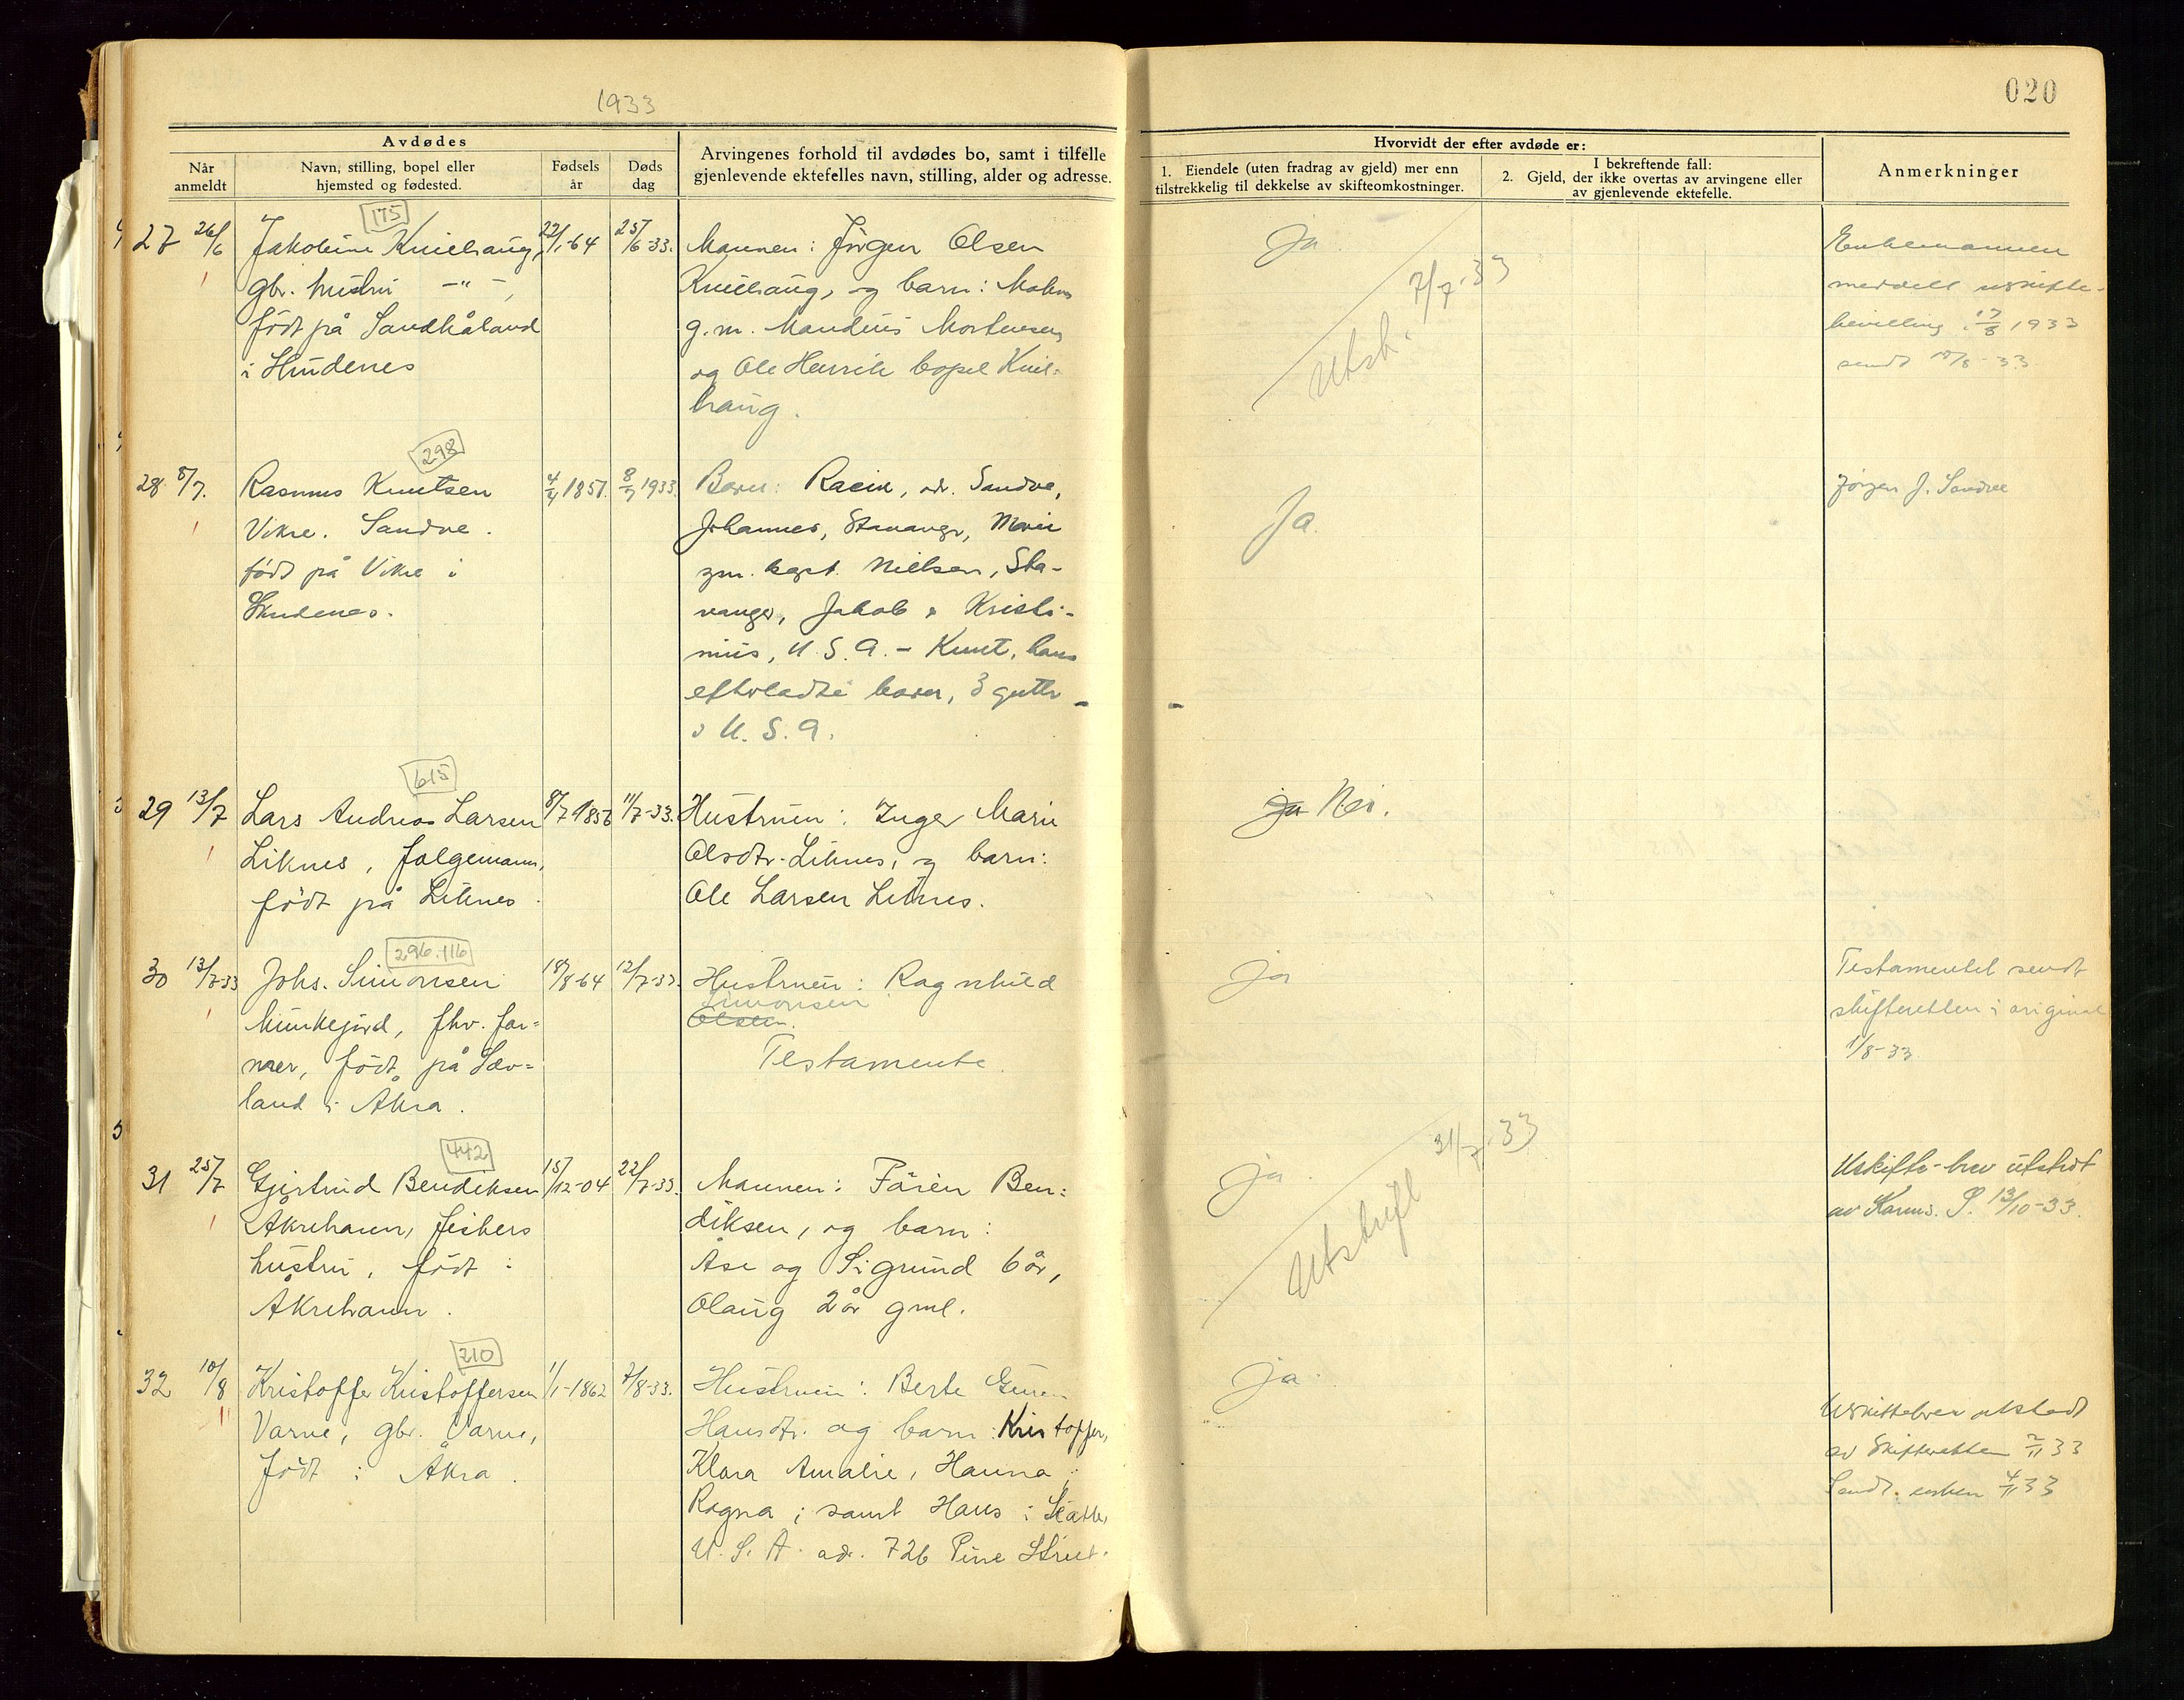 1933
020
Avdødes
Når anmeldt
Navn, stilling, bopel eller hjemsted og fødested.
Fødsels år
Døds dag
Arvingenes forhold til avdødes bo, samt i tilfelle
gjenlevende ektefelles navn, stilling, alder og adresse.
Hvorvidt der efter avdøde er:
1. Eiendele (uten fradrag av gjeld) mer enn
tilstrekkelig til dekkelse av skifteomkostninger.
I bekreftende fall:
2. Gjeld, der ikke overtas av arvingene eller
av gjenlevende ektefelle.
Anmerkninger
175
27 26/6 Jakobine Knielhaug,
gbr. hustru -"-,
født på Sandhåland
i Skudenes
/1-64
25/6-33.
Mannen: Jørgen Olsen
Knielhaug, og barn:
g.m. Mandius Mortensen
og Ole Henrik bopel Kniel-
haug.
ja
Utsk. 7/7-33
Enkemannen
meddelt uskifte-
bevilling 17/8 1933
sendt 18/8-33
298
28 8/7. Rasmus Knutsen
Vikre. Sandve.
født på Vikre i
Skudenes.
4/4 1851.
8/7 1933.
Barn: adr. Sandve,
Johannes, Stavanger, Marie
gm. kapt. Nielsen, Sta-
vanger, Jakob & Kristi-
nius, U.S.A. - Knut, hans
efterladte barn, 3 gutter
i U.S.A.
Ja.
Jørgen J. Sandve
615
29 13/7 Lars Andreas Larsen
Liknes, folgemann,
født på Liknes.
8/7 1856
11/7-33.
Hustruen: Inger Marie
Olsdtr. Liknes, og barn:
Ole Larsen Liknes.
ja Nei.
296.116
30 13/7-33 Johs. Simonsen
Munkejord, fhv. for-
mer, født på Sæv-
land i Åkra.
18/8-64
12/7-33.
Hustruen: Ragnhild
Simonsen
Olsen.
Testamente
ja
Testamentet sendt
skifteretten i original
1/8-33
442
31 25/7 Gjertrud Bendiksen
Åkrehavn, fiskers
hustru, født i
Åkrehavn.
15/12-04
22/7-33.
Mannen: Fåren Ben-
diksen, og barn:
Åse og Sigrund 6 år,
Olaug 2 år gml.
ja.
Utskrift 31/7-33
Uskifte-brev utstedt
av Karms. S. 13/10-33.
210
32 10/8 Kristoffer Kristoffersen
Varne, gbr. Varne,
født i Åkra.
1/1-1862
7/8-33.
Hustruen: Berte
Hansdtr. og barn: Kristoffer,
Klara Amalie, Hanna,
Ragna; samt Hans i Seattle,
U.S.A. adr. 726 Pine Street.
ja.
Uskiftebrev utstedt
av Skifteretten 2/11 33
Sendt enken 4/11 33